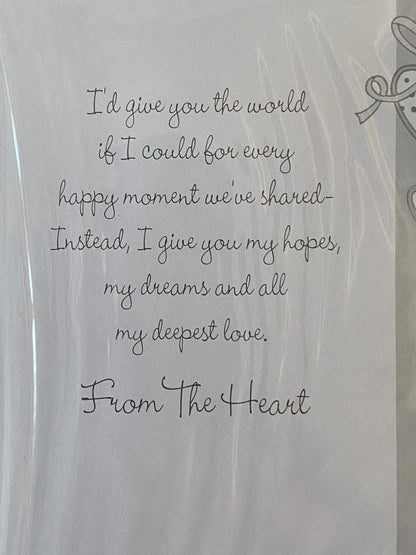 I'd give you the world
if I could for every
happy moment we've shared-
Instead, I give you my hopes,
my dreams and all
my deepest love.
From The Heart